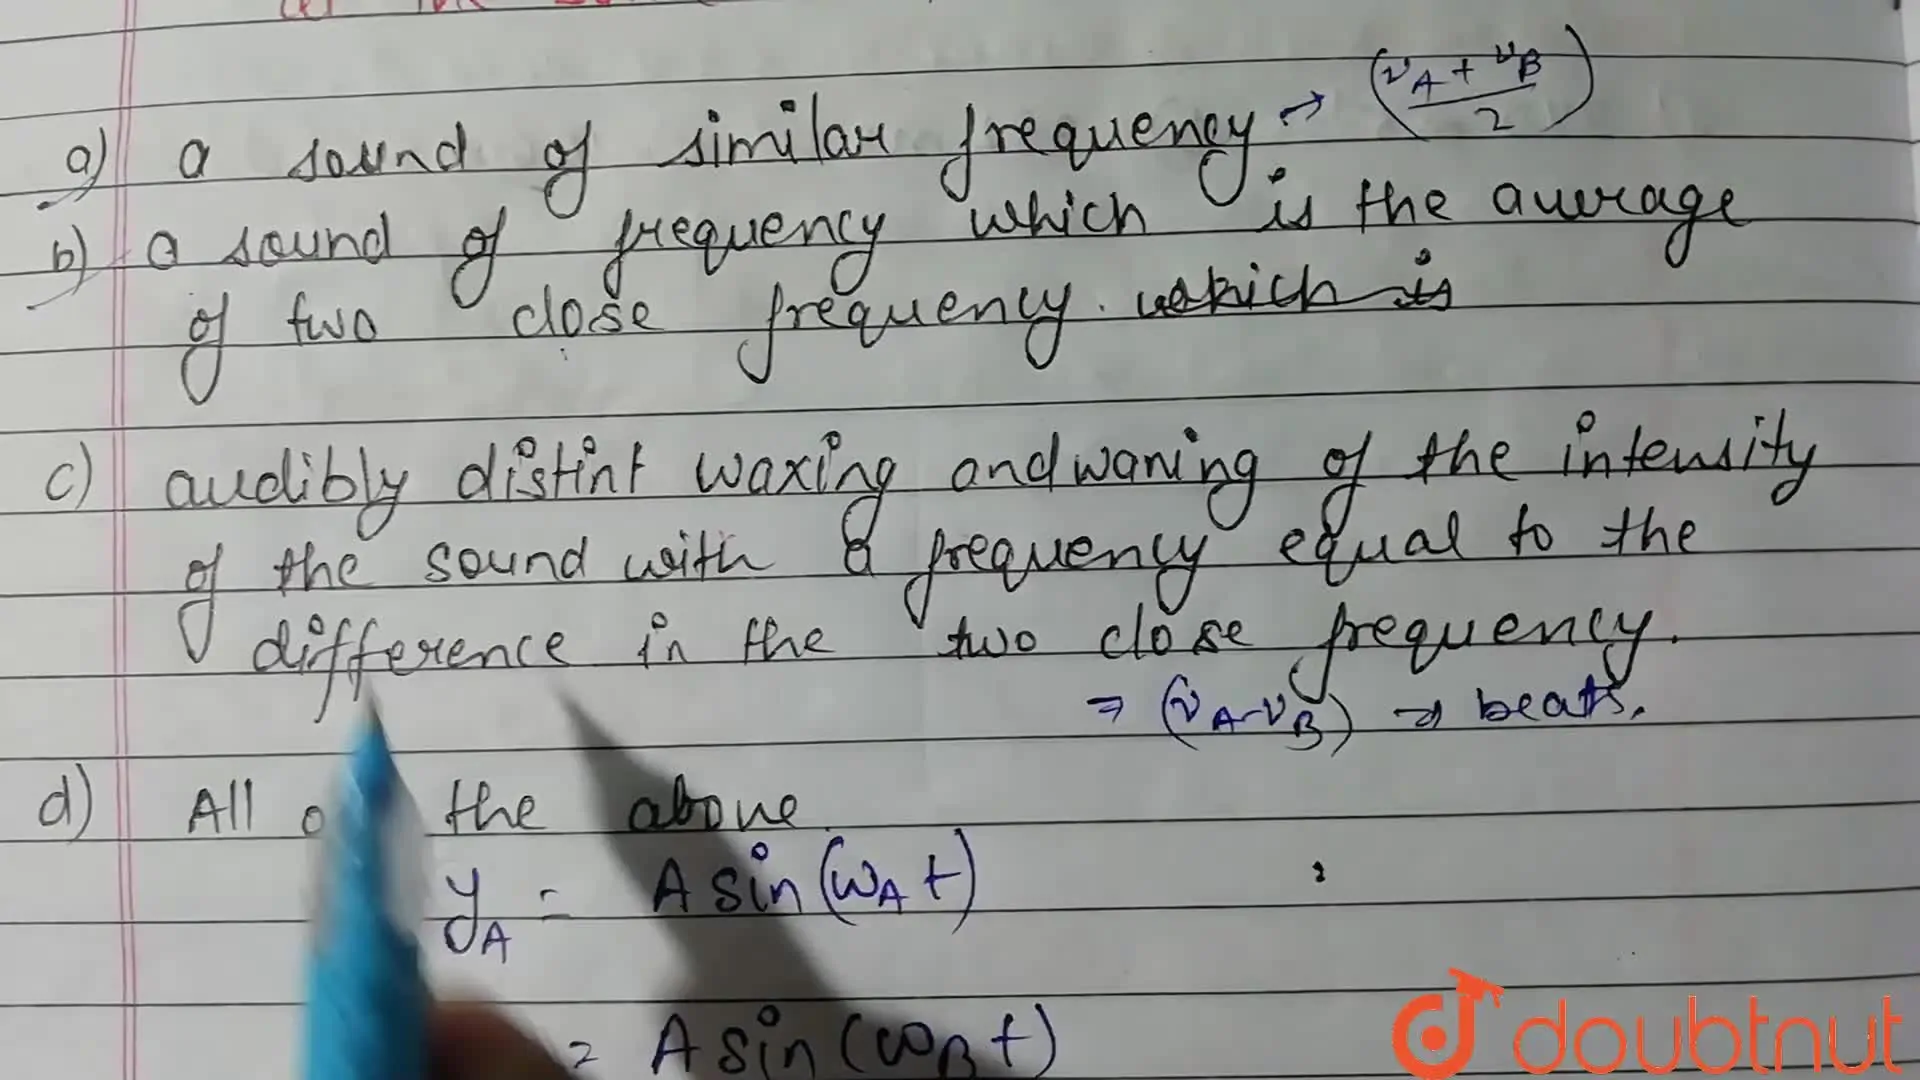 a) a sound of similar frequency → (νA + νB / 2)
b) a sound of frequency which is the average
of two close frequency. which is
c) audibly distint waxing and waning of the intensity
of the sound with a frequency equal to the
difference in the two close frequency.
⇒ (νA-νB) → beats.
d) All the above.
yA = A sin(ωA t)
= A sin(ωB t)
doubtnut